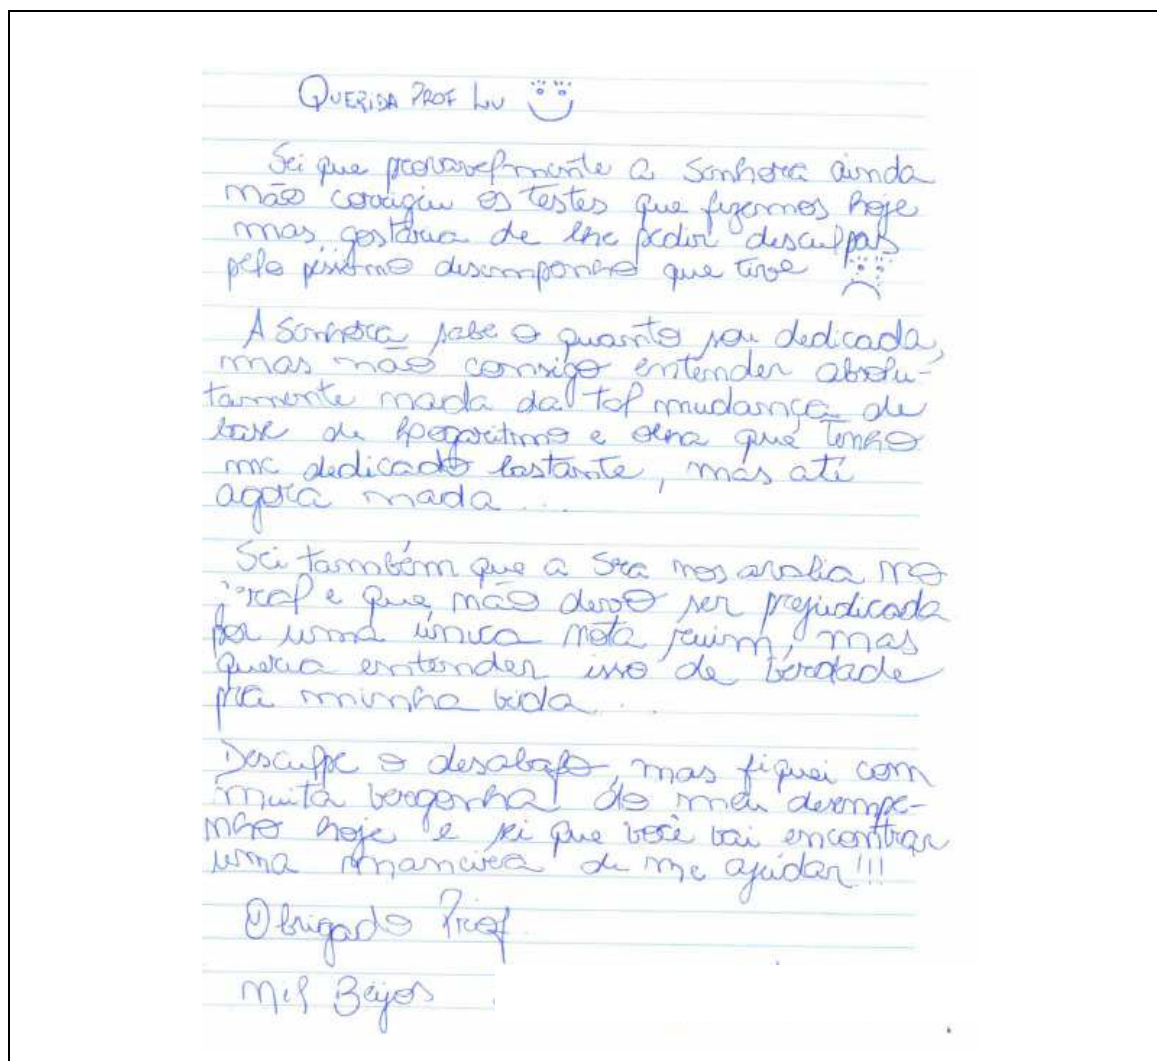 QUERIDA PROF LU
Sei que provavelmente a Senhora ainda
não corrigiu os testes que fizemos hoje
mas gostaria de lhe pedir desculpas
pelo péssimo desempenho que tive
A Senhora sabe o quanto sou dedicada,
mas não consigo entender absolu-
tamente nada da tal mudança de
base de logaritmo e olha que tenho
me dedicado bastante, mas até
agora nada...
Sei também que a Sra nos avalia no
geral e que não devo ser prejudicada
por uma única nota ruim, mas
queria entender isso de verdade
pra minha vida...
Desculpe o desabafo, mas fiquei com
muita vergonha do meu desempe-
nho hoje e sei que você vai encontrar
uma maneira de me ajudar!!!
Obrigado Prof.
Mil Beijos